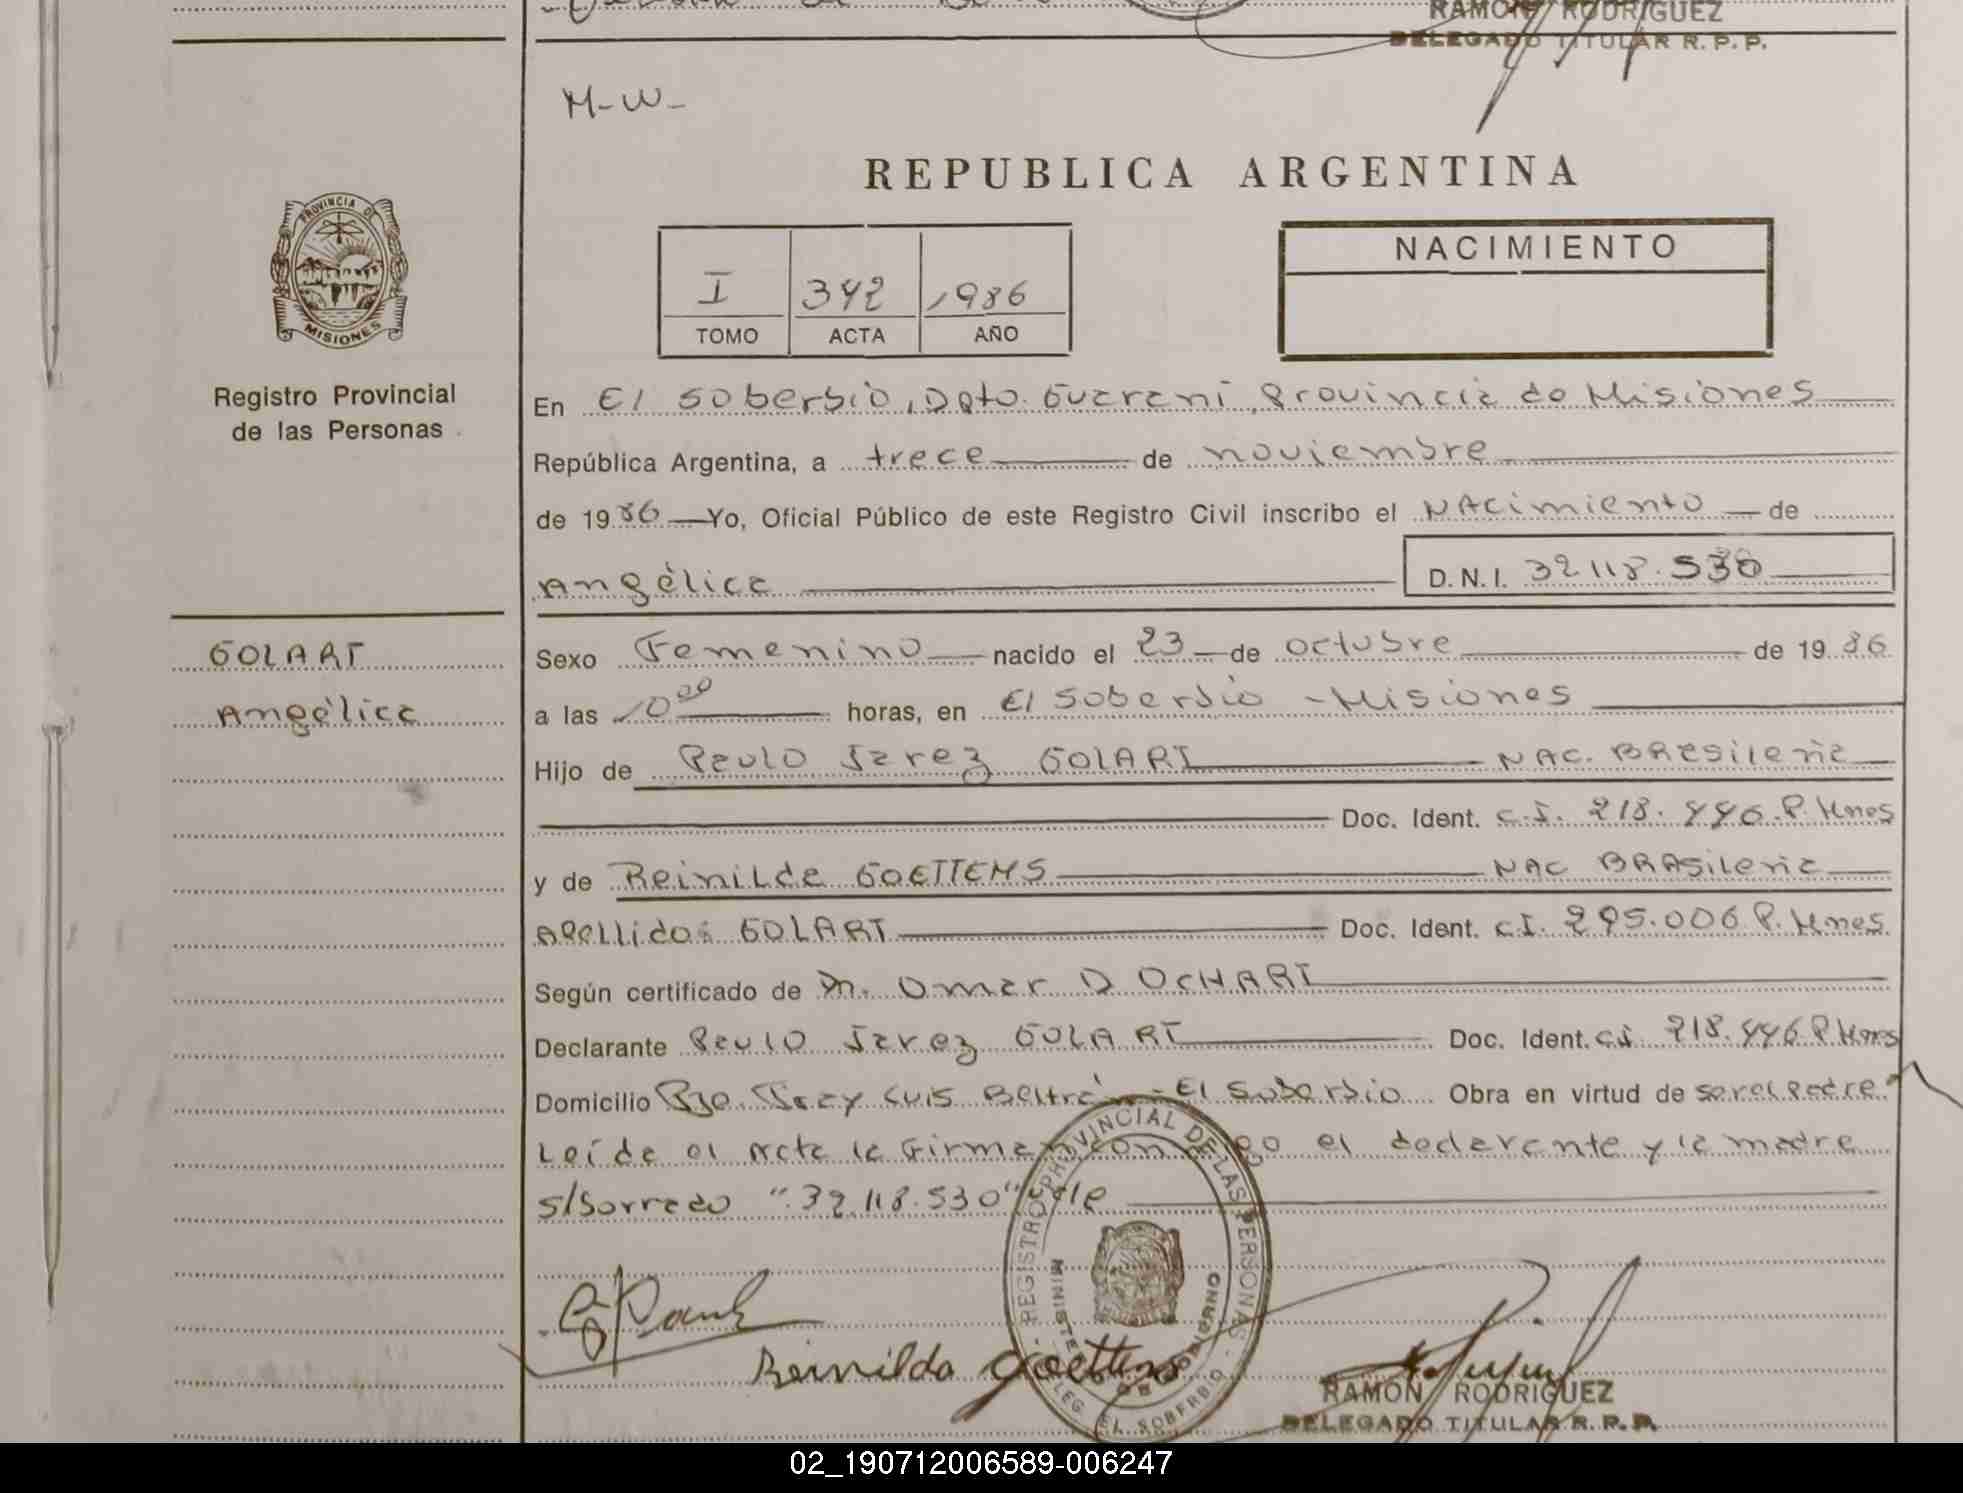 RAMON RODRIGUEZ
DELEGADO TITULAR R. P. P.
M-W-
REPUBLICA ARGENTINA
PROVINCIA DE
MISIONES
Registro Provincial
de las Personas
I 342 1986
TOMO ACTA AÑO
NACIMIENTO
En El Soberbio, Dpto. Guaraní, Provincia de Misiones
República Argentina, a trece de noviembre
de 1986 Yo, Oficial Público de este Registro Civil inscribo el NAcimiento de
Angélica D.N.I. 32.118.530
GOLART
Angélica
Sexo Femenino nacido el 23 de octubre de 1986
a las 10 00 horas, en El Soberbio - Misiones
Hijo de Paulo Jarez GOLART NAC. BRasileña
Doc. Ident. C.I. 218.446 P. Mnes
y de Reinilda GOETTEMS NAC BRASileña
Apellido: GOLART Doc. Ident. C.I. 295.006 P. Mnes.
Según certificado de Dr. Omar D OCHART
Declarante Paulo Jarez GOLART Doc. Ident. C.I. 218.446 P Mnes
Domicilio Bo. Fray Luis Beltrá - El Soberbio Obra en virtud de ser el Padre.
Leída el Acta la firman conmigo el declarante y la madre
s/borrado "32.118.530" vle
Reinilda Goettems
REGISTRO PROVINCIAL DE LAS PERSONAS
MINISTERIO DE GOBIERNO
DELEG. EL SOBERBIO
RAMON RODRIGUEZ
DELEGADO TITULAR R. P. P.
02_190712006589-006247